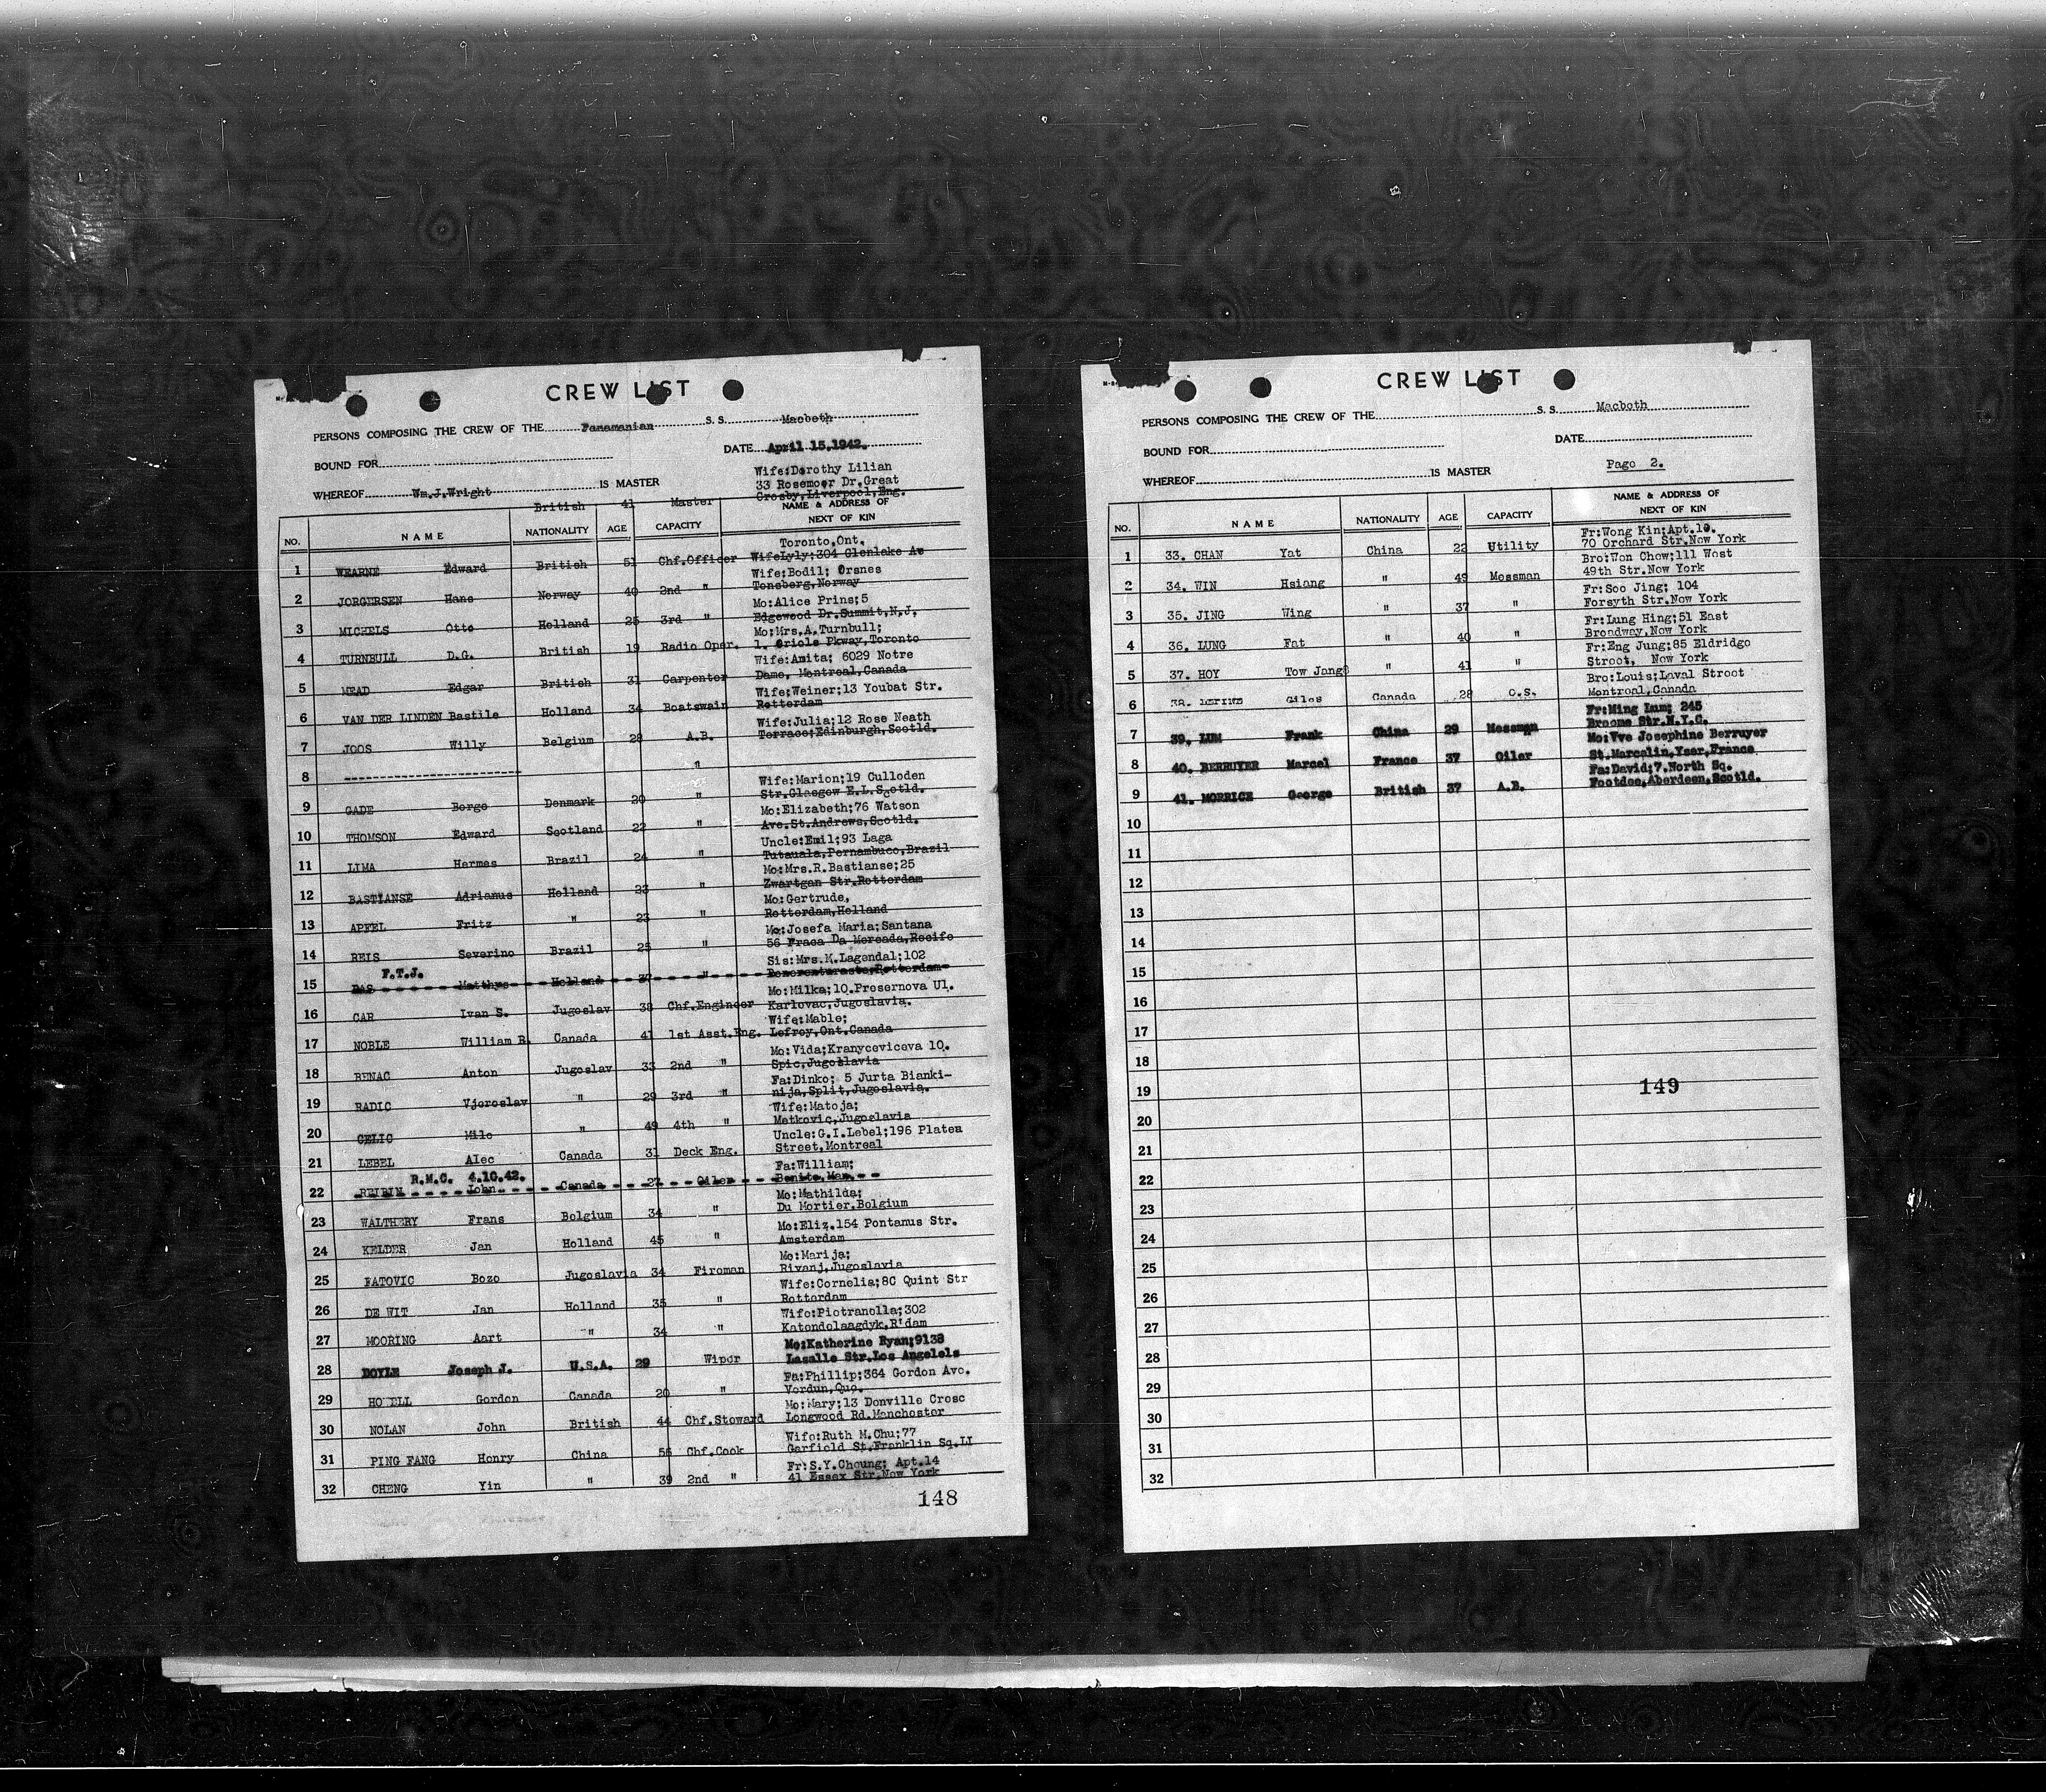 CREW LIST
PERSONS COMPOSING THE CREW OF THE Panamanian S.S. Macbeth
BOUND FOR DATE April 15,1942.
WHEREOF Wm.J.Wright IS MASTER
Wife:Dorothy Lilian
33 Rosemoor Dr.Great
British 41 Master Crosby,Liverpool,Eng.
NO. NAME NATIONALITY AGE CAPACITY NAME & ADDRESS OF NEXT OF KIN
Toronto,Ont.
1 WEARNE Edward British 51 Chf.Officer WifeLyly;304 Glenlake Av
Wife:Bodil; Orsnes
2 JORGERSEN Hans Norway 40 2nd " Tonsberg,Norway
Mo:Alice Prins;5
3 MICHELS Otto Holland 25 3rd " Edgewood Dr.Summit,N.J.
Mo:Mrs.A.Turnbull;
4 TURNBULL D.G. British 19 Radio Oper. 1. Oriole Pkway,Toronto
Wife:Anita; 6029 Notre
5 MEAD Edgar British 31 Carpenter Dame, Montreal,Canada
Wife:Weiner;13 Youbat Str.
6 VAN DER LINDEN Bastile Holland 34 Boatswain Rotterdam
Wife:Julia;12 Rose Neath
7 JOOS Willy Belgium 28 A.B. Terrace;Edinburgh,Scotld.
8 ------------------------ "
Wife:Marion;19 Culloden
9 GADE Borge Denmark 20 " Str.Glasgow E.1.Scotld.
Mo:Elizabeth;76 Watson
10 THOMSON Edward Scotland 22 " Ave.St.Andrews,Scotld.
Uncle:Emil;93 Laga
11 LIMA Hermes Brazil 24 " Tutauala,Pernambuco,Brazil
Mo:Mrs.R.Bastianse;25
12 BASTIANSE Adrianus Holland 23 " Zwartgan Str.Rotterdam
Mo:Gertrude,
13 APFEL Fritz " 23 " Rotterdam,Holland
Mo:Josefa Maria;Santana
14 REIS Severino Brazil 25 " 56 Praca Da Mercada,Recife
F.T.J. Sis:Mrs.M.Lagendal;102
15 BAS Matthys Holland 37 " Rotterdam
Mo:Milka;10.Presernova Ul.
16 CAR Ivan S. Jugoslav 38 Chf.Engineer Karlovac,Jugoslavia.
Wife:Mable;
17 NOBLE William R. Canada 41 1st Asst.Eng. Lefroy,Ont.Canada
Mo:Vida;Kranyceviceva 10.
18 BENAC Anton Jugoslav 33 2nd " Spic,Jugoslavia
Fa:Dinko; 5 Jurta Bianki-
19 RADIC Vjeroslav " 29 3rd " nija,Split,Jugoslavia.
Wife:Matoja;
20 CELIC Mile " 49 4th " Matkovic,Jugoslavia
Uncle:G.I.Lebel;196 Platea
21 LEBEL Alec Canada 31 Deck Eng. Street,Montreal
R.M.C. 4.10.42. Fa:William;
22 John Canada 27 Oiler Benito,Man.
Mo:Mathilda;
23 WALTHERY Frans Belgium 34 " Du Mortier.Belgium
Mo:Eliz.154 Pontanus Str.
24 KELDER Jan Holland 45 " Amsterdam
Mo:Marija;
25 FATOVIC Bozo Jugoslavia 34 Fireman Rivanj,Jugoslavia
Wife:Cornelia;8C Quint Str
26 DE WIT Jan Holland 35 " Rotterdam
Wife:Pietranella;302
27 MOORING Aart " 34 " Katendolaagdyk,R'dam
Mo:Katherine Ryan;9138
28 DOYLE Joseph J. U.S.A. 29 Wiper Lasalle Str.Los Angelels
Fa:Phillip;364 Gordon Ave.
29 HOWELL Gordon Canada 20 " Verdun,Que.
Mo:Mary;13 Donville Cresc
30 NOLAN John British 44 Chf.Steward Longwood Rd.Manchester
Wife:Ruth M.Chu;77
31 PING FANG Henry China 56 Chf.Cook Garfield St.Franklin Sq.LI
Fr:S.Y.Cheung; Apt.14
32 CHENG Yin " 39 2nd " 41 Essex Str.New York
148
CREW LIST
PERSONS COMPOSING THE CREW OF THE S.S. Macbeth
BOUND FOR DATE
WHEREOF IS MASTER Page 2.
NO. NAME NATIONALITY AGE CAPACITY NAME & ADDRESS OF NEXT OF KIN
Fr:Wong Kin;Apt.10.
1 33. CHAN Yat China 22 Utility 70 Orchard Str.New York
Bro:Won Chow;111 West
2 34. WIN Hsiang " 49 Messman 49th Str.New York
Fr:Soo Jing; 104
3 35. JING Wing " 37 " Forsyth Str.New York
Fr:Lung Hing;51 East
4 36. LUNG Fat " 40 " Broadway,New York
Fr:Eng Jung;85 Eldridge
5 37. HOY Tow Jang " 41 " Street, New York
Bro:Louis;Laval Street
6 38. LEPINE Giles Canada 28 O.S. Montreal,Canada
Fr:Ming Lum; 245
7 39. LUM Frank China 29 Messman Broome Str.N.Y.C.
Mo:Vve Josephine Berruyer
8 40. BERRUYER Marcel France 37 Oiler St.Marcelin,Yser,France
Fa:David;7.North Sq.
9 41. MORRICE George British 37 A.B. Footdee,Aberdeen,Scotld.
10
11
12
13
14
15
16
17
18
19 149
20
21
22
23
24
25
26
27
28
29
30
31
32